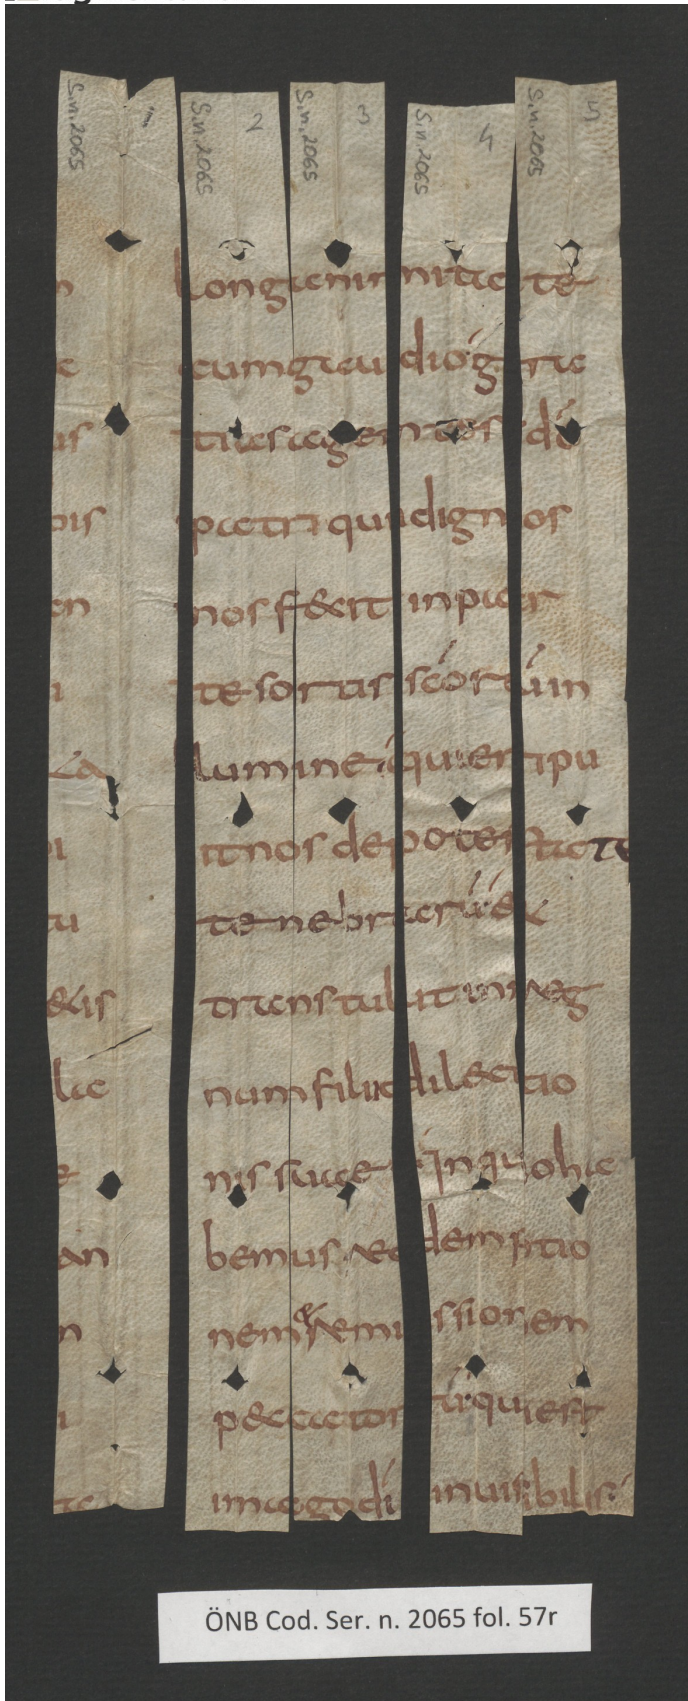 S.n. 2065
1
S.n. 2065
2
S.n. 2065
3
S.n. 2065
4
S.n. 2065
5
n
e
us
bis
en
i
i
tu
&is
lic
e
an
n
i
te
longanimitate
cum gaudio gra
tias agentes dō
patri qui dignos
nos f&cit in par
te sortis scōrū in
lumine qui eripu
it nos de potestate
tenebrarū &
transtulit in reg
num filii dil&ctio
nis suae In quo ha
bemus redemptio
nem & remissionem
p&ccator̄ū qui est
imago dī inuisibilis
ÖNB Cod. Ser. n. 2065 fol. 57r